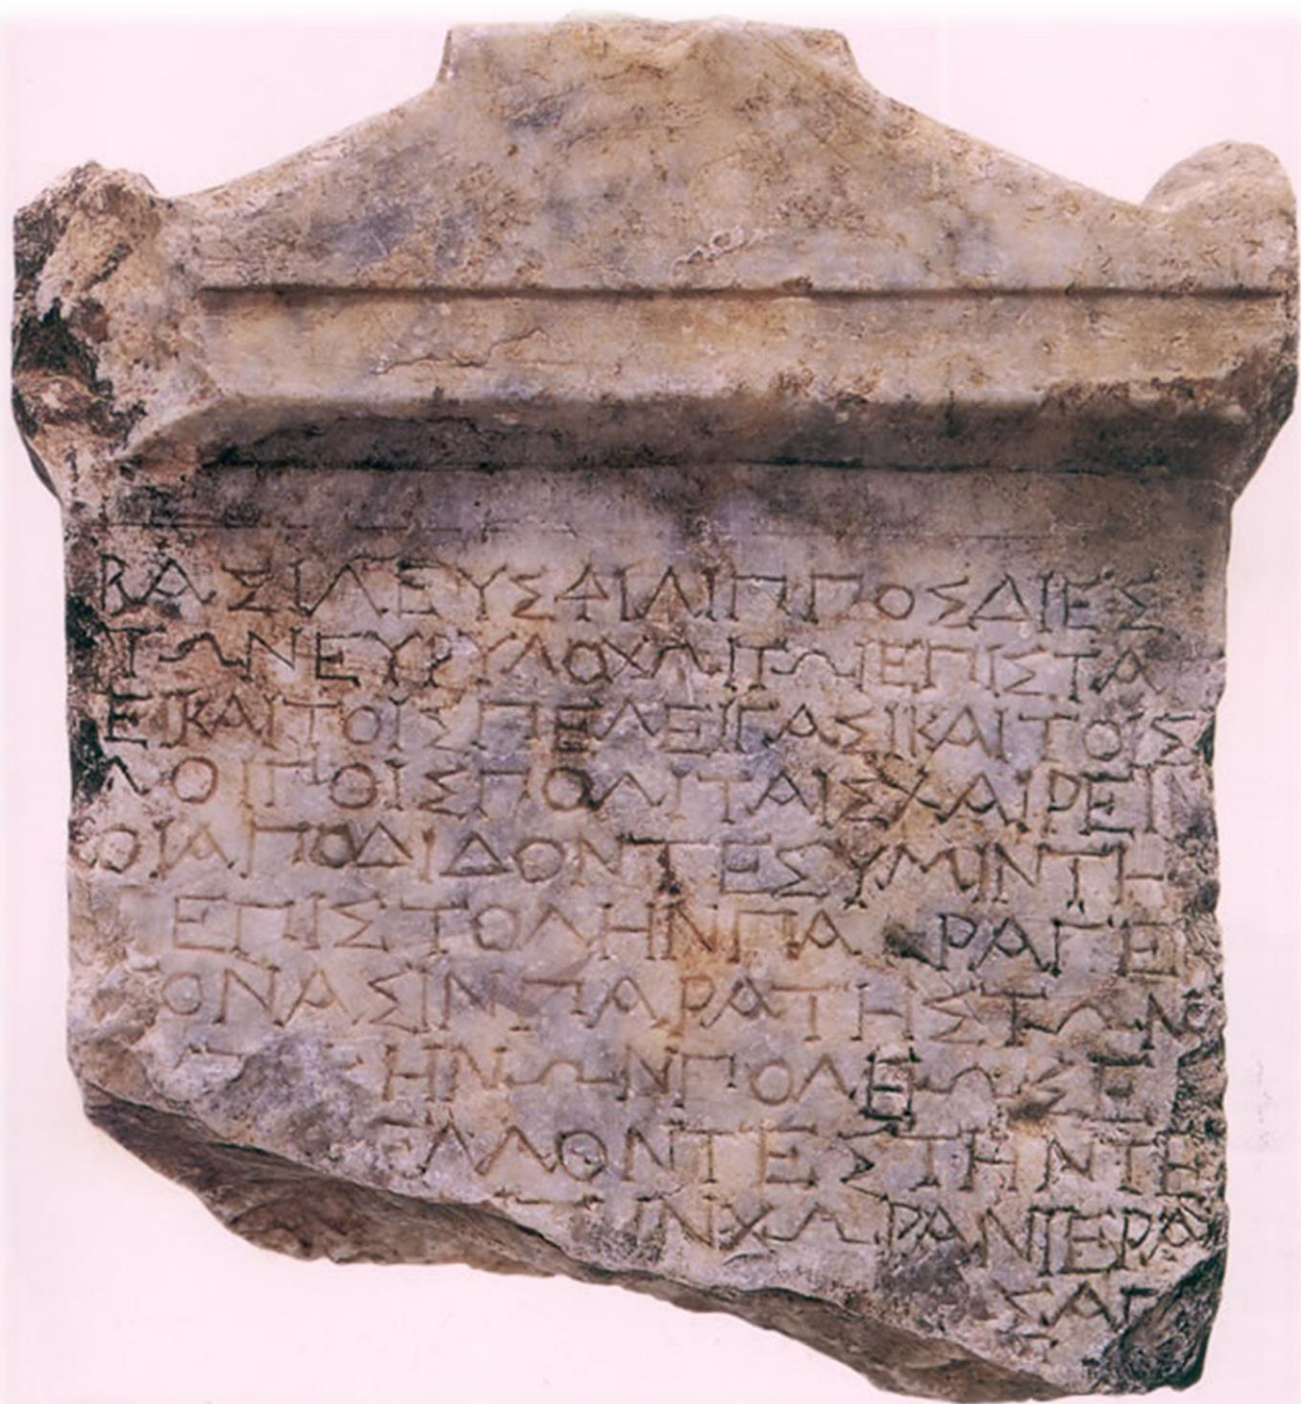 ΒΑΣΙΛΕΥΣΦΙΛΙΠΠΟΣΔΙΕΣ
ΤΩΝΕΥΡΥΛΟΧΩΙΤΩΙΕΠΙΣΤΑ
ΕΙΚΑΙΤΟΙΣΠΕΛΕΙΓΑΣΙΚΑΙΤΟΙΣ
ΛΟΙΠΟΙΣΠΟΛΙΤΑΙΣΧΑΙΡΕΙΝ
ΟΙΑΠΟΔΙΔΟΝΤΕΣΥΜΙΝΤΗ
ΕΠΙΣΤΟΛΗΝΠΑΡΑΓΕ
ΟΝΑΣΙΝΠΑΡΑΤΗΣΤΩΝ
ΗΝΩΝΠΟΛΕΩΣΕ
ΕΛΘΟΝΤΕΣΤΗΝΤΕ
ΗΝΧΩΡΑΝΙΕΡΑ
ΣΑΓ